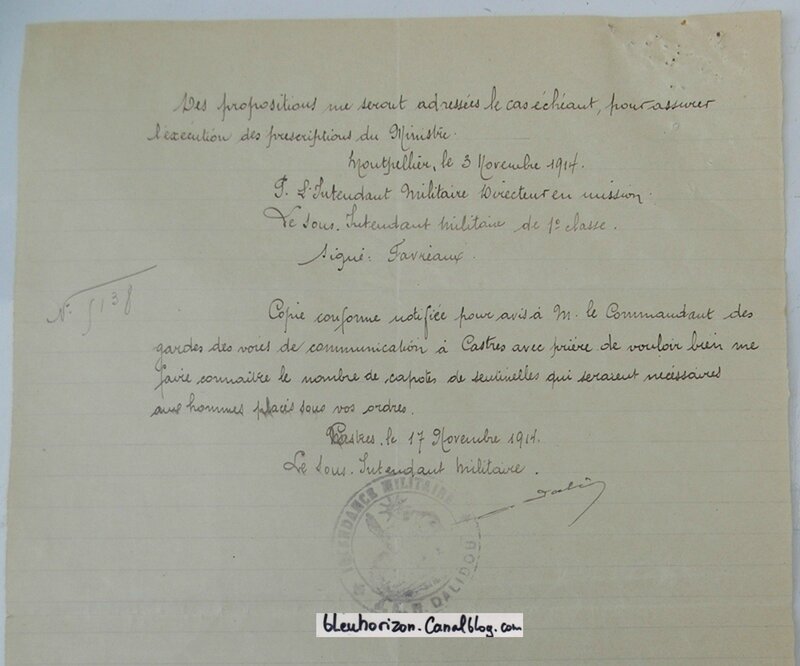 Des propositions me seront adressées le cas échéant, pour assurer
l'exécution des prescriptions du Ministre.
Montpellier, le 3 Novembre 1914.
P. L'Intendant Militaire Directeur en mission.
Le Sous-Intendant Militaire de 1e classe.
Signé: Favreaux.
N° 5138
Copie conforme notifiée pour avis à M. le Commandant des
gardes des voies de communication à Castres avec prière de vouloir bien me
faire connaître le nombre de capotes de sentinelles qui seraient nécessaires
aux hommes placés sous vos ordres.
Castres, le 17 Novembre 1914.
Le Sous-Intendant Militaire.
INTENDANCE MILITAIRE
DALIDOU
bleuhorizon.Canalblog.com